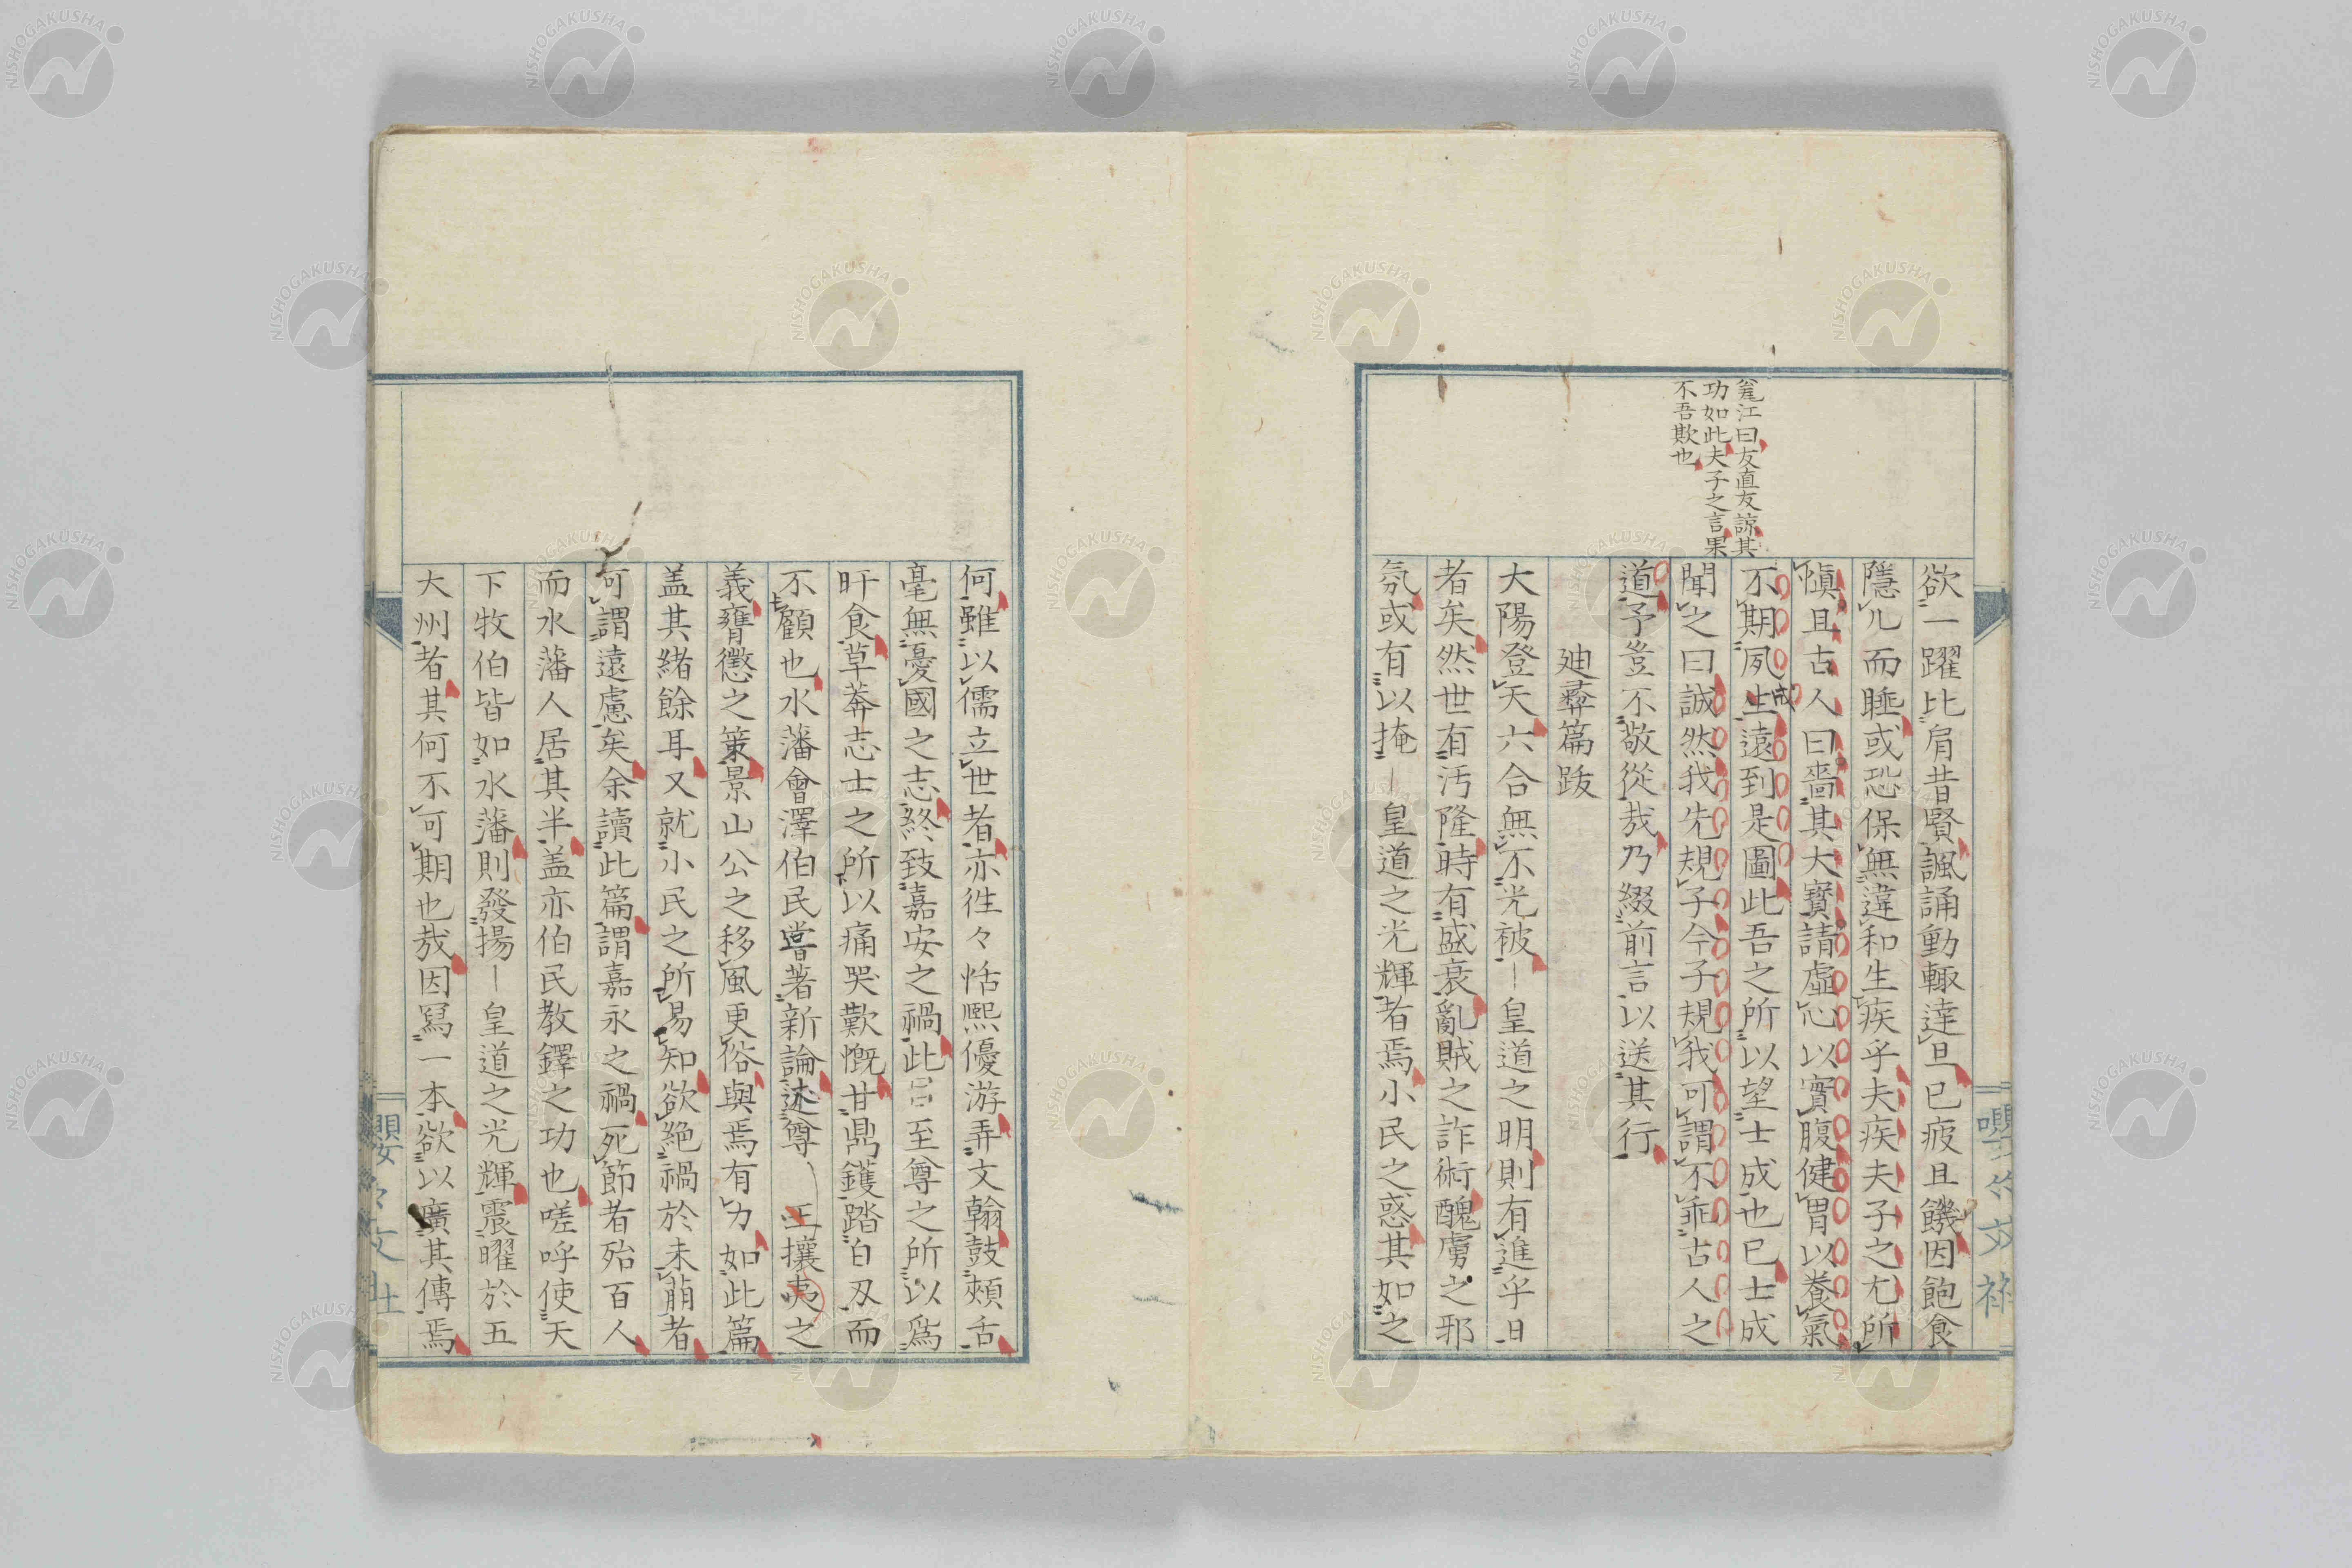 欲一躍比肩昔賢諷誦動輙達旦已疲且饑因飽食
隱几而睡或恐保無違和生疾乎夫疾夫子之尤所
愼且古人曰嗇其大寳請虛心以實腹健胃以養氣
不期夙成遠到是圖此吾之所以望士成也已士成
聞之曰誠然我先規子今子規我可謂不乖古人之
道予豈不敬從哉乃綴前言以送其行
廸彛篇跋
大陽登天六合無不光被皇道之明則有進乎日
者矣然世有汚隆時有盛衰亂賊之詐術醜虜之邪
氛或有以掩皇道之光輝者焉小民之惑其如之
毫江曰友直友諒其
功如此夫子之言果
不吾欺也
何雖以儒立世者亦徃々恬熈優游弄文翰鼓頰舌
毫無憂國之志終致嘉安之禍此至尊之所以爲
旰食草莽志士之所以痛哭歎慨甘鼎鑊踏白刃而
不顧也水藩會澤伯民嘗著新論述尊王攘夷之
義膺懲之策景山公之移風更俗與焉有力如此篇
盖其緒餘耳又就小民之所易知欲絶禍於未萠者
可謂遠慮矣余讀此篇謂嘉永之禍死節者殆百人
而水藩人居其半盖亦伯民教鐸之功也嗟呼使天
下牧伯皆如水藩則發揚皇道之光輝震曜於五
大州者其何不可期也哉因冩一本欲以廣其傳焉